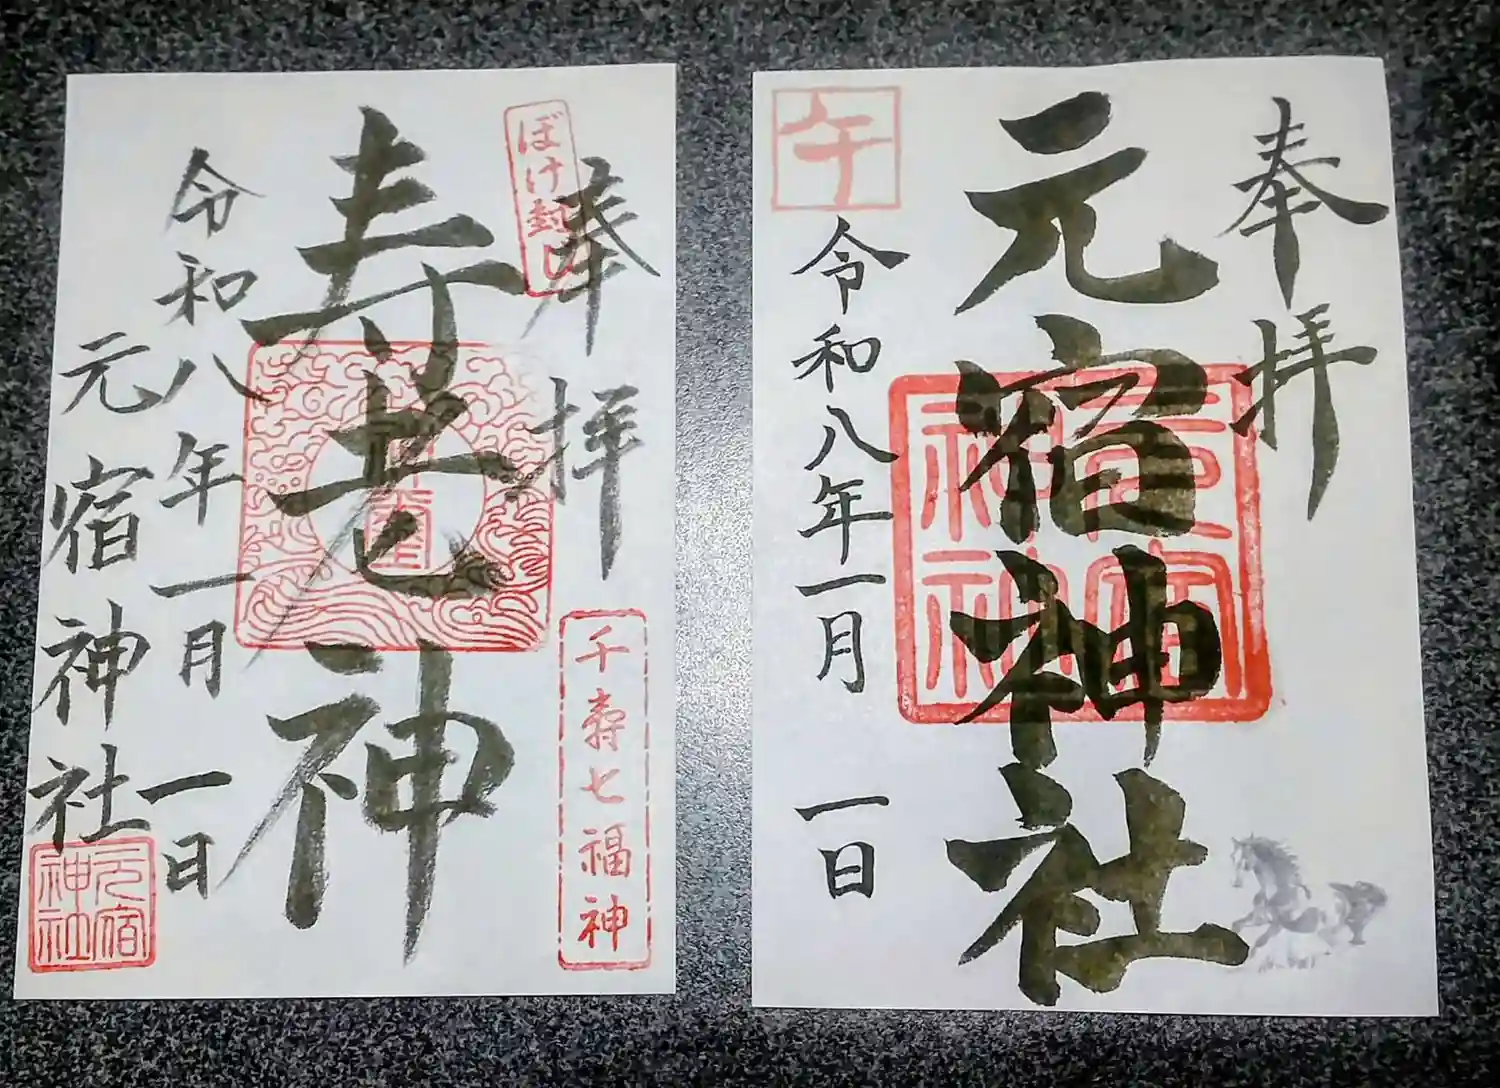 奉拝
元宿神社
午
令和八年一月一日
元宿神社
ぼけ封じ
奉拝
千寿七福神
寿老神
令和八年一月一日
元宿神社
元宿神社